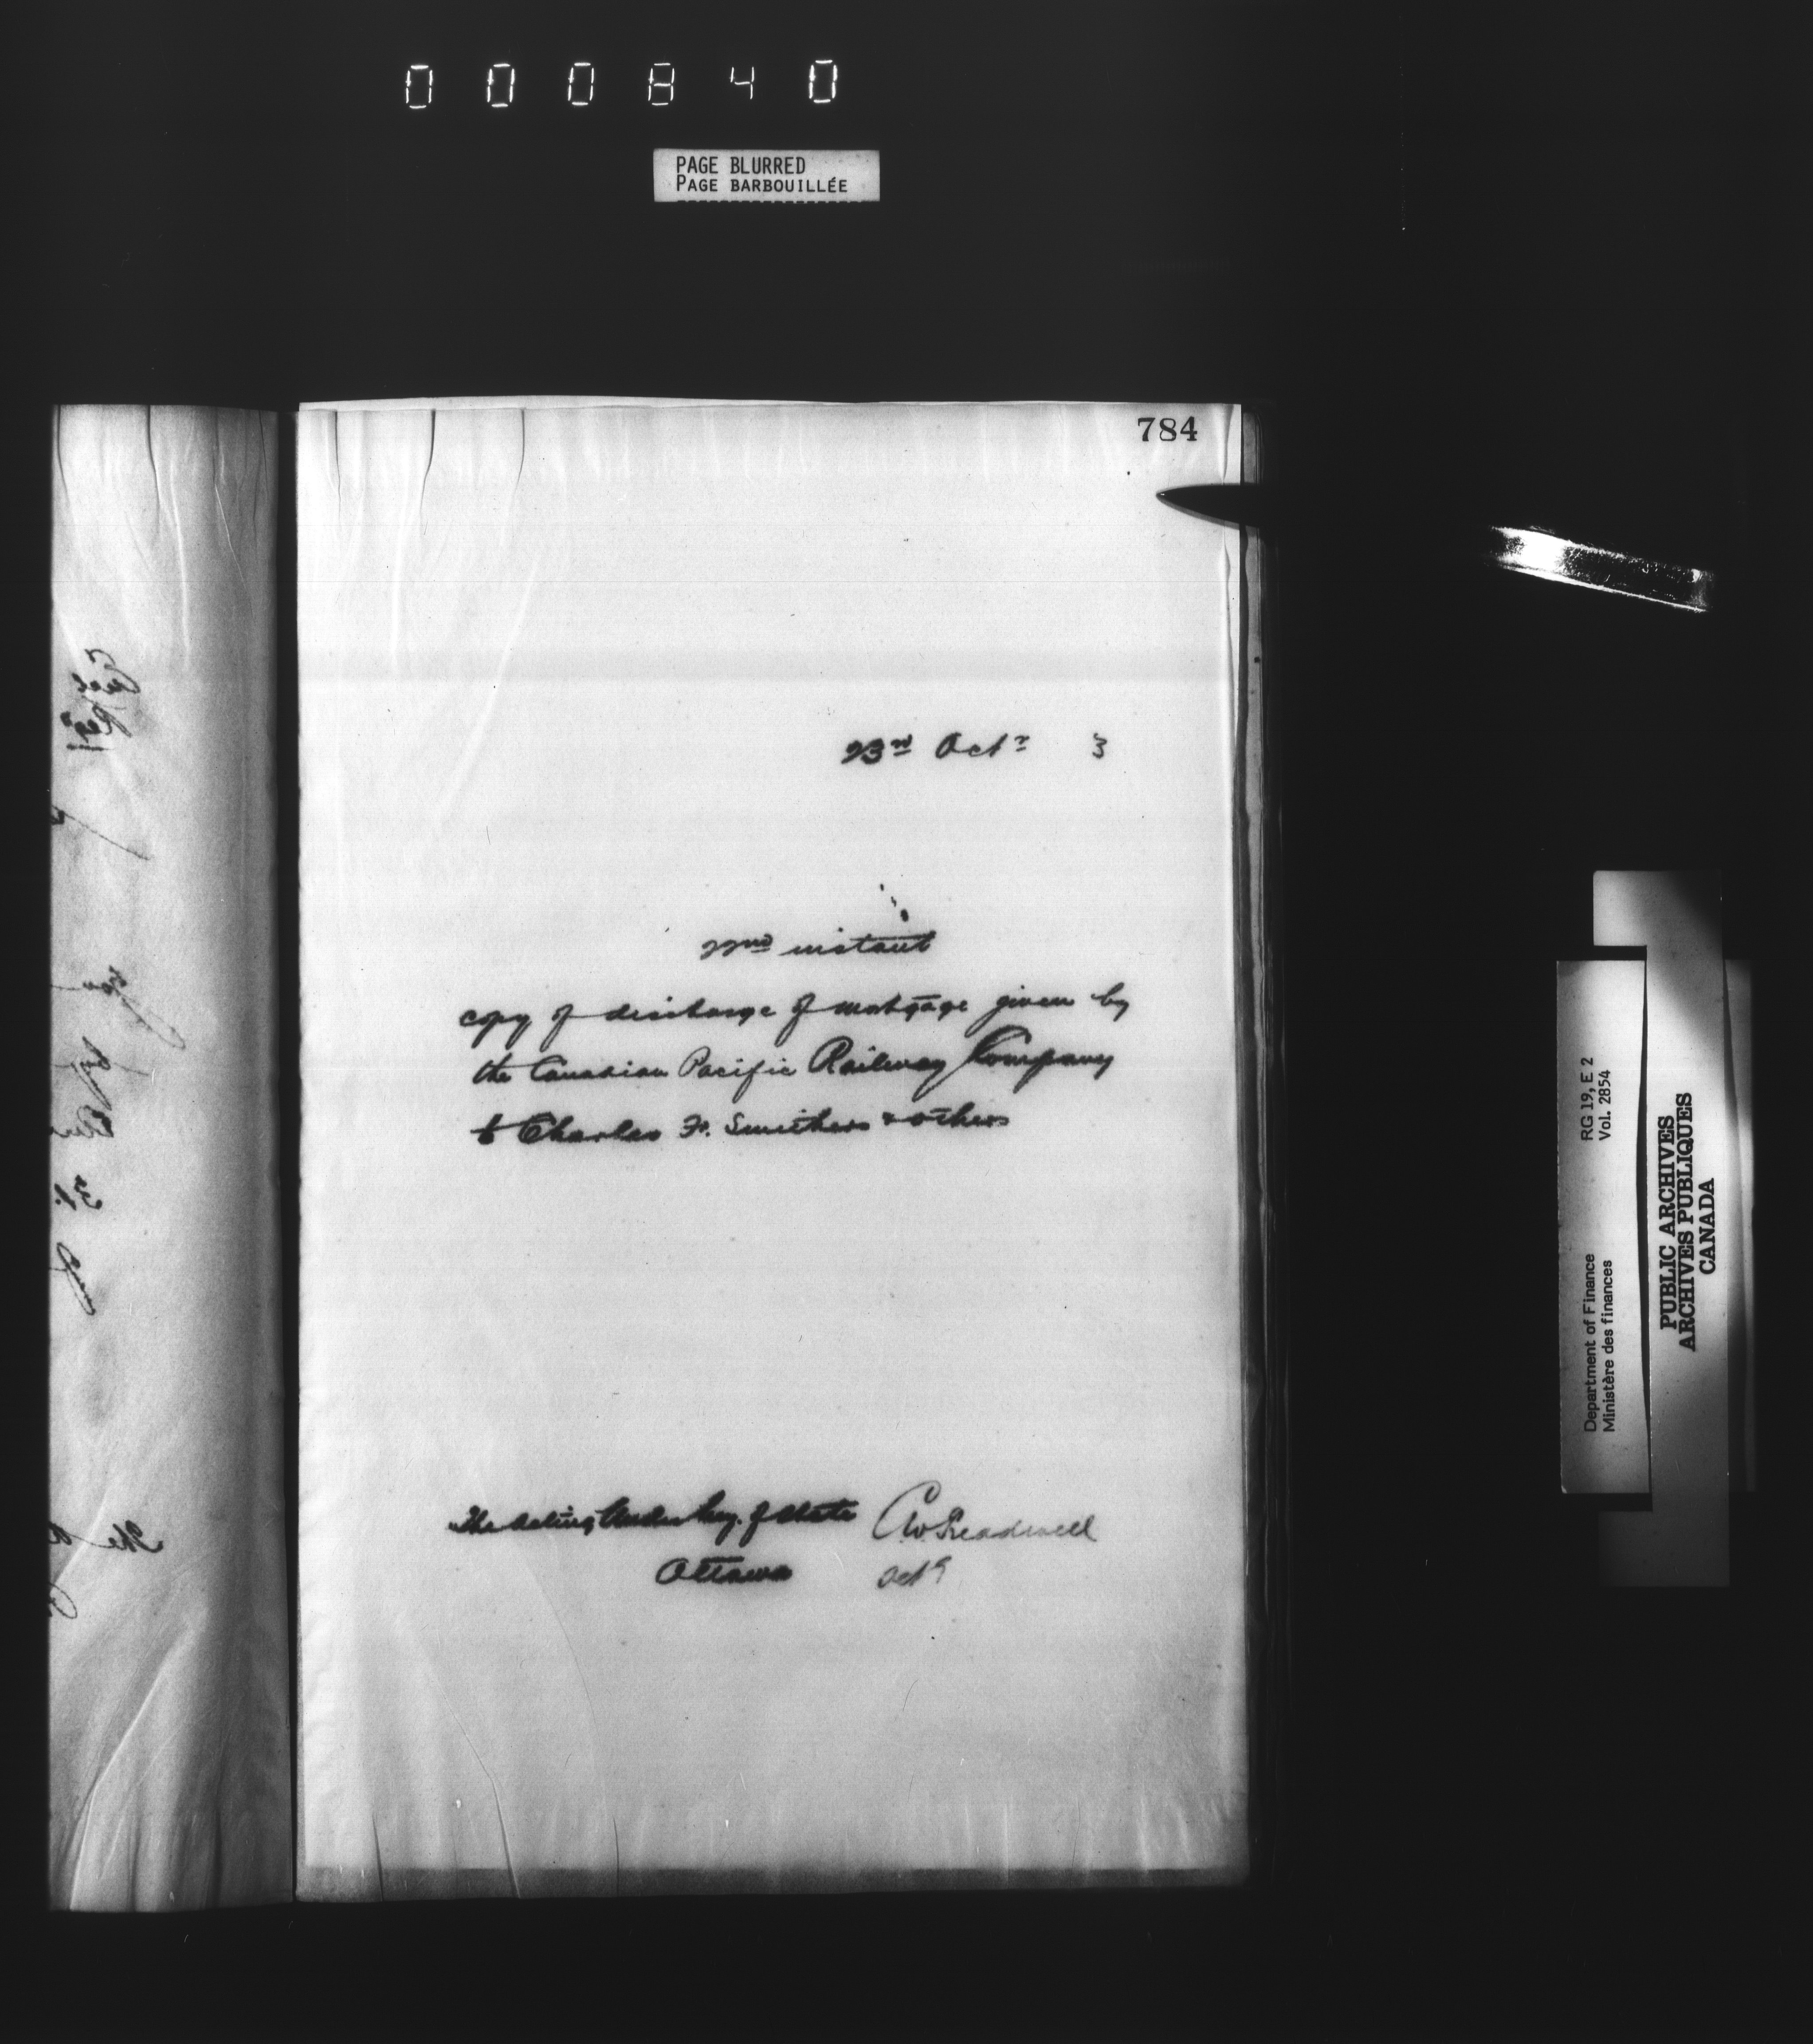 000840
PAGE BLURRED
PAGE BARBOUILLÉE
784
23rd Octr 3
22nd instant
copy of discharge of mortgage given by
the Canadian Pacific Railway Company
to Charles F. Smithers & others
The Acting Under Secy. of State
Ottawa
RG 19, E 2
Vol. 2854
Department of Finance
Ministère des finances
PUBLIC ARCHIVES
ARCHIVES PUBLIQUES
CANADA